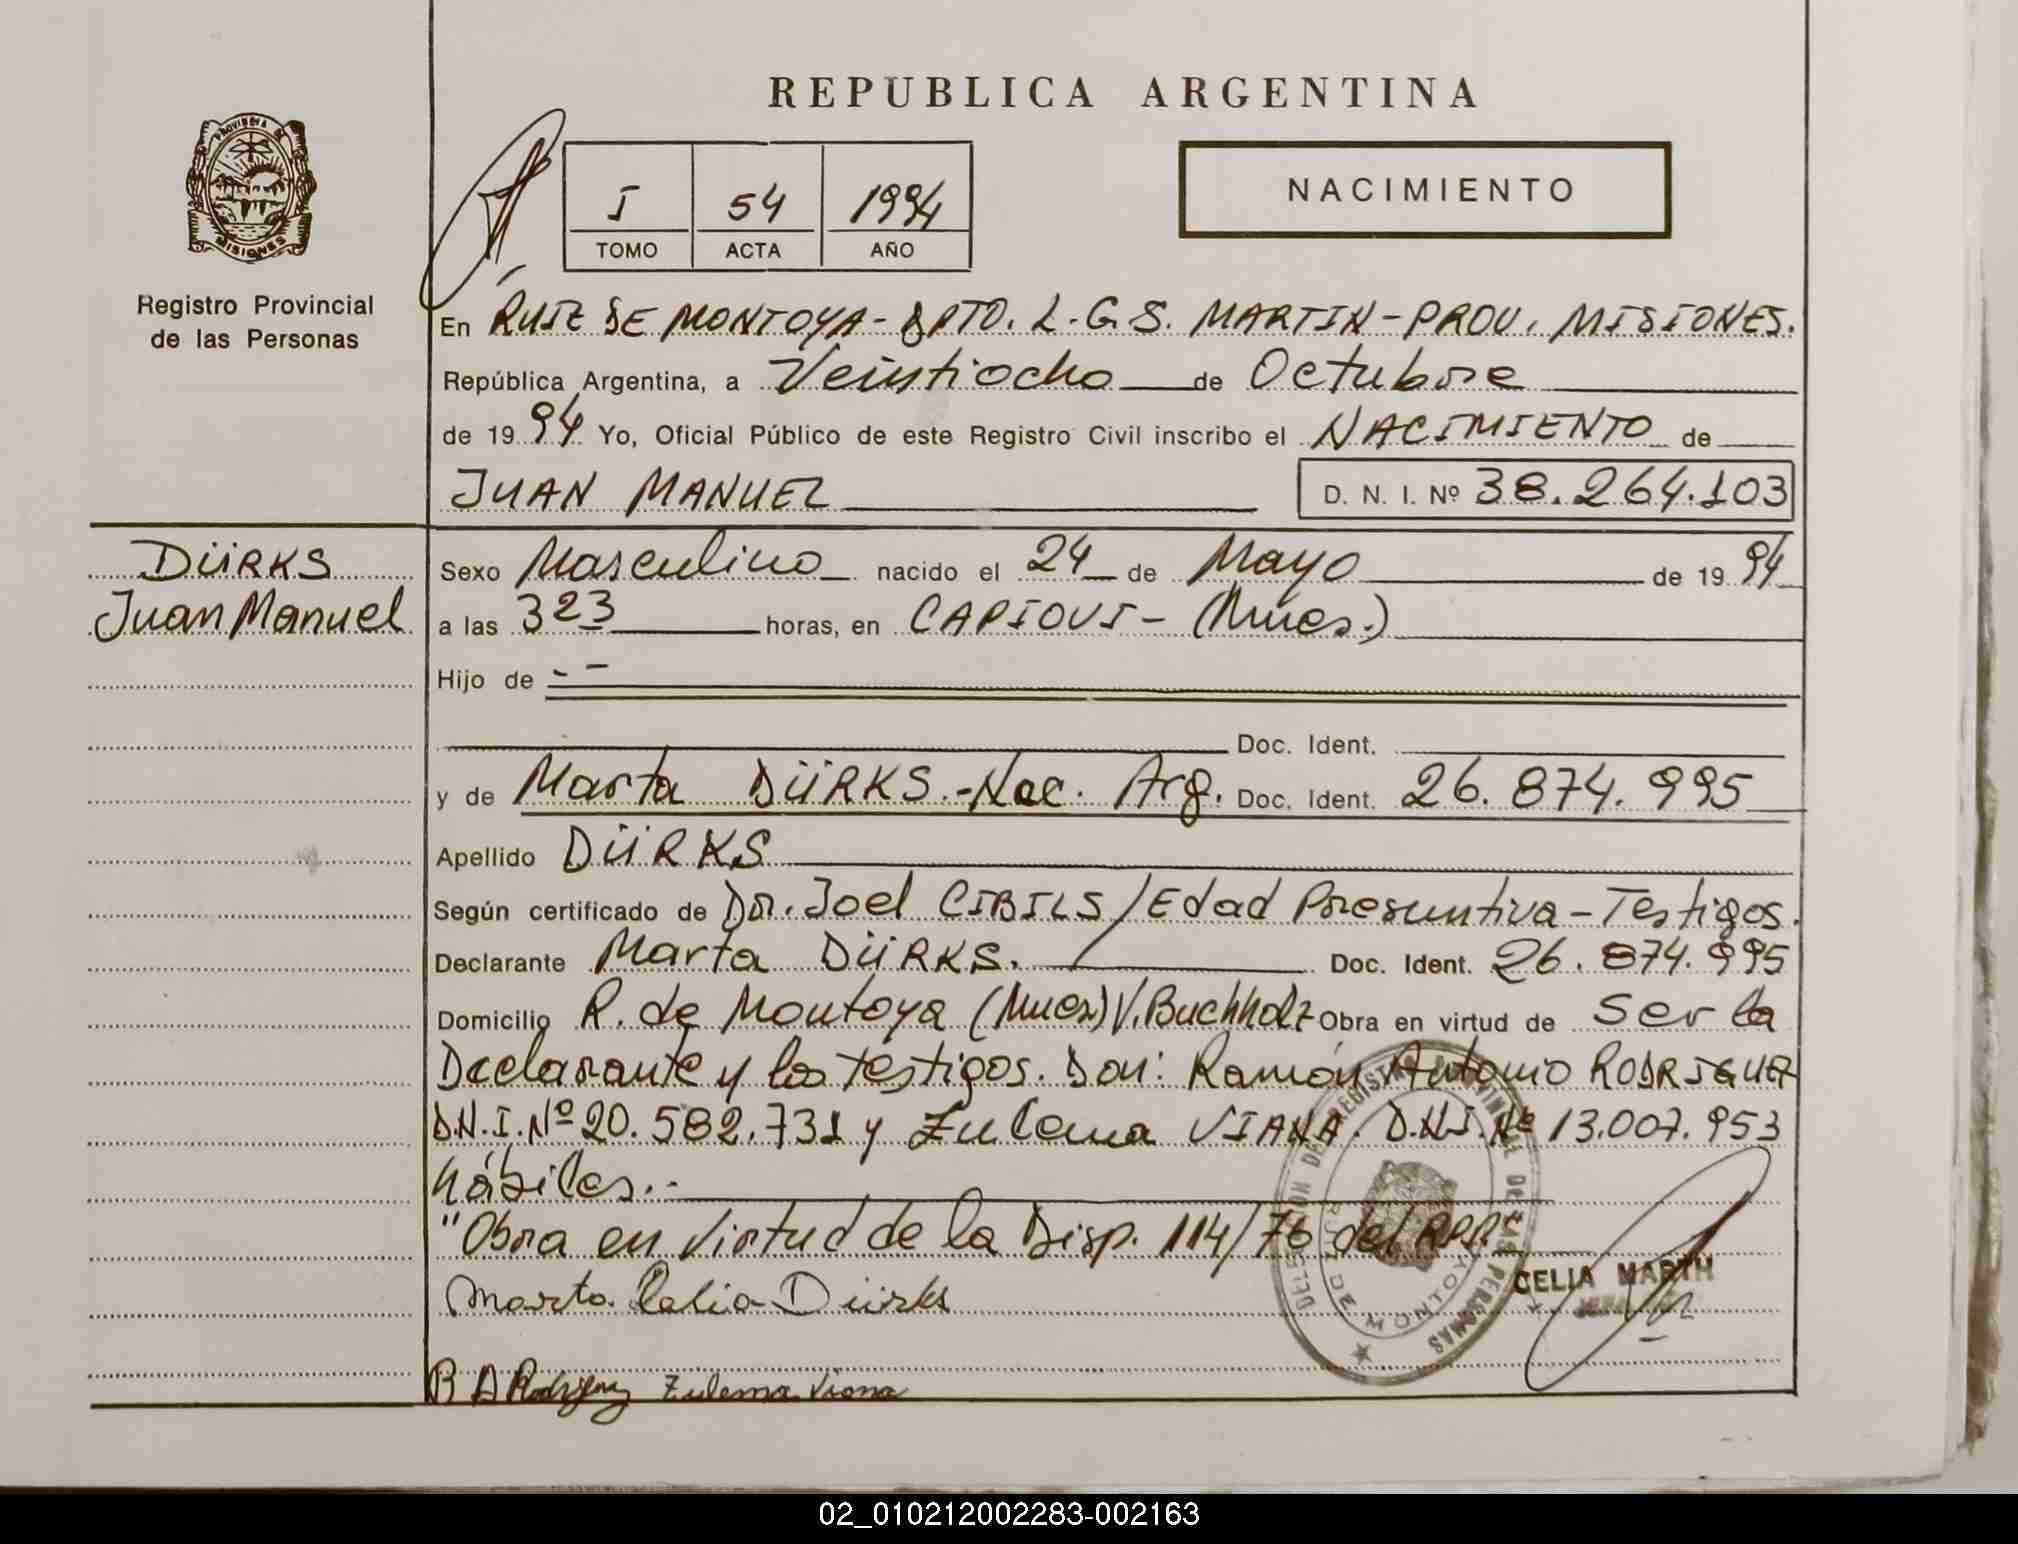 REPUBLICA ARGENTINA
PROVINCIA DE
MISIONES
Registro Provincial
de las Personas
I 54 1994
TOMO ACTA AÑO
NACIMIENTO
En RUIZ DE MONTOYA - DPTO. L.G.S. MARTIN - PROV. MISIONES.
República Argentina, a Veintiocho de Octubre
de 1994 Yo, Oficial Público de este Registro Civil inscribo el NACIMIENTO de
JUAN MANUEL D. N. I. Nº 38.264.103
DÜRKS
Juan Manuel
Sexo Masculino nacido el 24 de Mayo de 1994
a las 323 horas, en CAPIOVI - (Mnes.)
Hijo de - -
Doc. Ident.
y de Marta DÜRKS.-Nac. Arg. Doc. Ident. 26.874.995
Apellido DÜRKS
Según certificado de Dr. Joel CIBILS / Edad Presuntiva - Testigos.
Declarante Marta DÜRKS. Doc. Ident. 26.874.995
Domicilio R. de Montoya (Mnes) V. Buchholz Obra en virtud de Ser la
Declarante y los testigos. Don: Ramón Antonio RODRIGUEZ
D.N.I. Nº 20.582.731 y Zulema VIANA. D.N.I. Nº 13.007.953
hábiles.-
"Obra en Virtud de la Disp. 114/76 del RPP.
Marta Dürks
CELIA MARTH
R A Rodriguez Zulema Viana
REGISTRO PROVINCIAL DE LAS PERSONAS
RUIZ DE MONTOYA
02_010212002283-002163